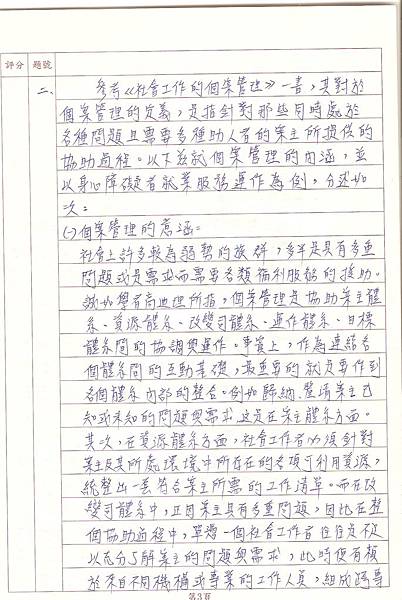 評分 題號
二、
參考《社會工作的個案管理》一書，其對於
個案管理的定義，是指針對那些同時處於
各種問題且需要多種助人者的案主所提供的
協助過程。以下茲就個案管理的內涵，並
以身心障礙者就業服務運作為例，分述如
次：
(一)個案管理的意涵：
社會上許多較為弱勢的族群，多半是具有多重
問題或是需求而需要各類福利服務的援助。
誠如學者所指，個案管理是協助案主體
系、資源體系、改變司體系、運作體系、目標
體系間的協調與運作。事實上，作為連結各
個體系間的互動基礎，最重要的就是要作到
各個體系內部的整合。例如歸納、釐清案主已
知或未知的問題與需求，這是在案主體系方面。
其次，在資源體系方面，社會工作者必須針對
案主及其所處環境中所存在的各項可利用資源，
統整出一套符合案主所需的工作清單。而在改
變司體系中，正因案主具有多重問題，因此在整
個協助過程中，單憑一個社會工作者往往不足
以充分了解案主的問題與需求，此時便有賴
於來自不同機構或專業的工作人員，組成跨專
第3頁